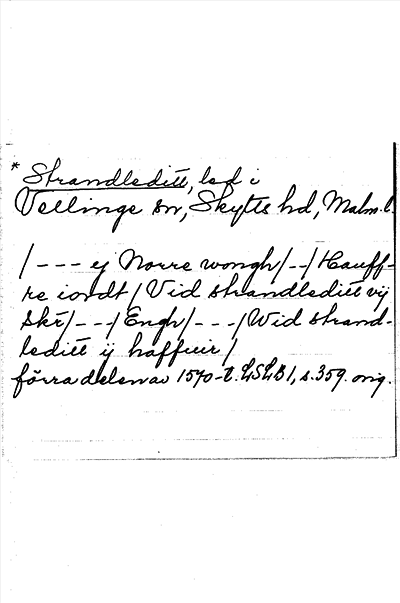 * Strandleditt, led i
Vellinge sn, Skytts hd, Malm. l.
/ - - - ej Norre wongh/ - - /Hauff-
re iordt / Vid strandleditt vij
Skr/ - - - /Engh/ - - - /Wid strand-
leditt ij haffuir/
förra delen av 1570-t. LSLB 1, s. 359. orig.